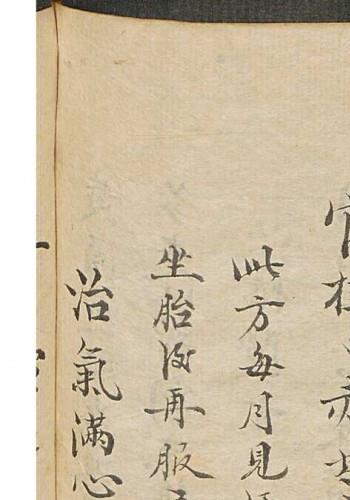 官桂
此方每月見
坐胎後再服
治氣滿心